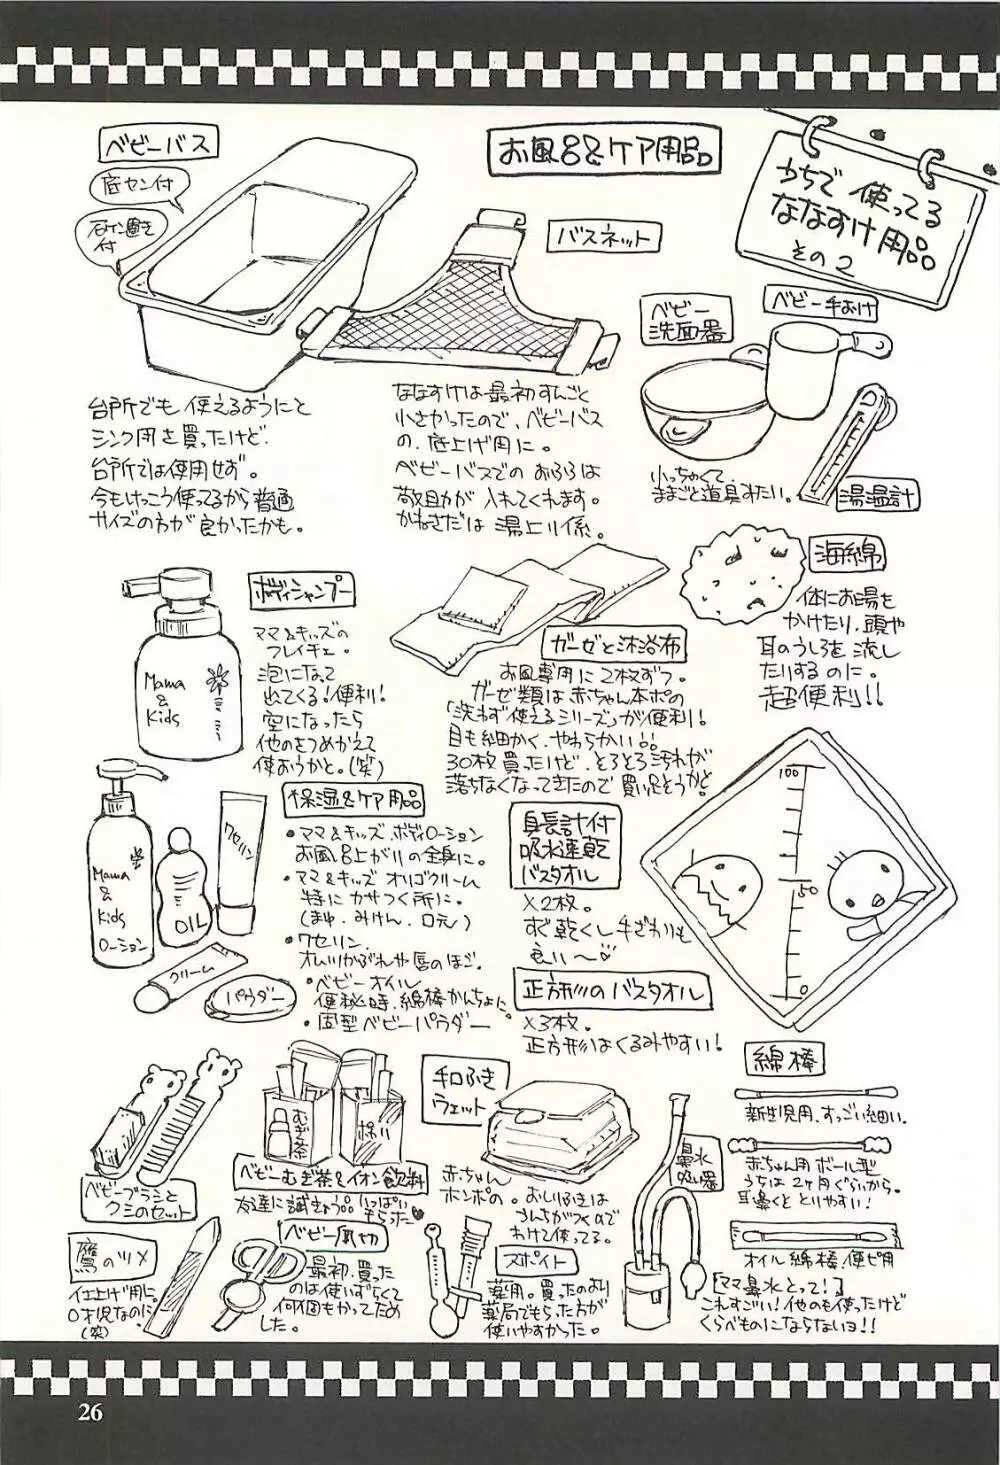 うちで使ってる
ななすけ用品
その2
お風呂&ケア用品
ベビーバス
底セン付
石ケン置き
付
台所でも使えるようにと
シンク用を買ったけど
台所では使用せず。
今もけっこう使ってるから普通
サイズの方が良かったかも。
バスネット
ななすけは最初すんごく
小さかったので、ベビーバス
の、底上げ用に。
ベビーバスでのおふろは
敬助が入れてくれます。
かねさだは湯上り係。
ベビー
洗面器
ベビー手おけ
小っちゃくて、
ままごと道具みたい。
湯温計
海綿
体にお湯を
かけたり、頭や
耳のうしろを流し
たりするのに。
超便利!!
ボディシャンプー
Mama
&
Kids
ママ&キッズの
泡になって
出てくる!便利!
空になったら
他のをつめかえて
使おうかと。(笑)
ガーゼと沐浴布
お風呂専用に2枚ずつ。
ガーゼ類は赤ちゃん本ポの
「洗わず使えるシリーズ」が便利!
目も細かく、やわらかい!!
30枚買ったけど、とろとろ汚れが
落ちなくなってきたので買い足そうかと。
保湿&ケア用品
・ママ&キッズ ボディローション
お風呂上がりの全身に。
・ママ&キッズ オリゴクリーム
特にカサつく所に。
(まゆ・みけん・口元)
・ワセリン
オムツかぶれや唇のほご。
・ベビーオイル
便秘時、綿棒かんちょに。
・固型ベビーパウダー
Mama
&
Kids
ローション
OIL
ワセリン
クリーム
パウダー
身長計付
吸水速乾
バスタオル
×2枚。
すぐ乾くし手ざわりも
良い〜♡
100
50
0
正方形のバスタオル
×3枚。
正方形はくるみやすい!
ベビーブラシと
クシのセット
むぎ茶
ベビーむぎ茶&イオン飲料
友達に試供品いっぱい
もらった♥
手口ふき
ウェット
赤ちゃん
ホンポの。おしりふきは
うんちがつくので
わけて使ってる。
綿棒
新生児用、すっごい細い。
赤ちゃん用ボール型
うちは2ヶ月ぐらいから。
耳・鼻くととりやすい!
オイル綿棒、便ピ用
鼻水
吸い器
[ママ鼻水とって!]
これすごい!他のも使ったけど
くらべものにならないヨ!!
鷹のツメ
仕上げ用に。
0才児なのに
(笑)
ベビー爪切
最初、買った
のは使いずらくて
何個もかってため
した。
スポイト
薬用。買ったのより
薬局でもらった方が
使いやすかった。
26